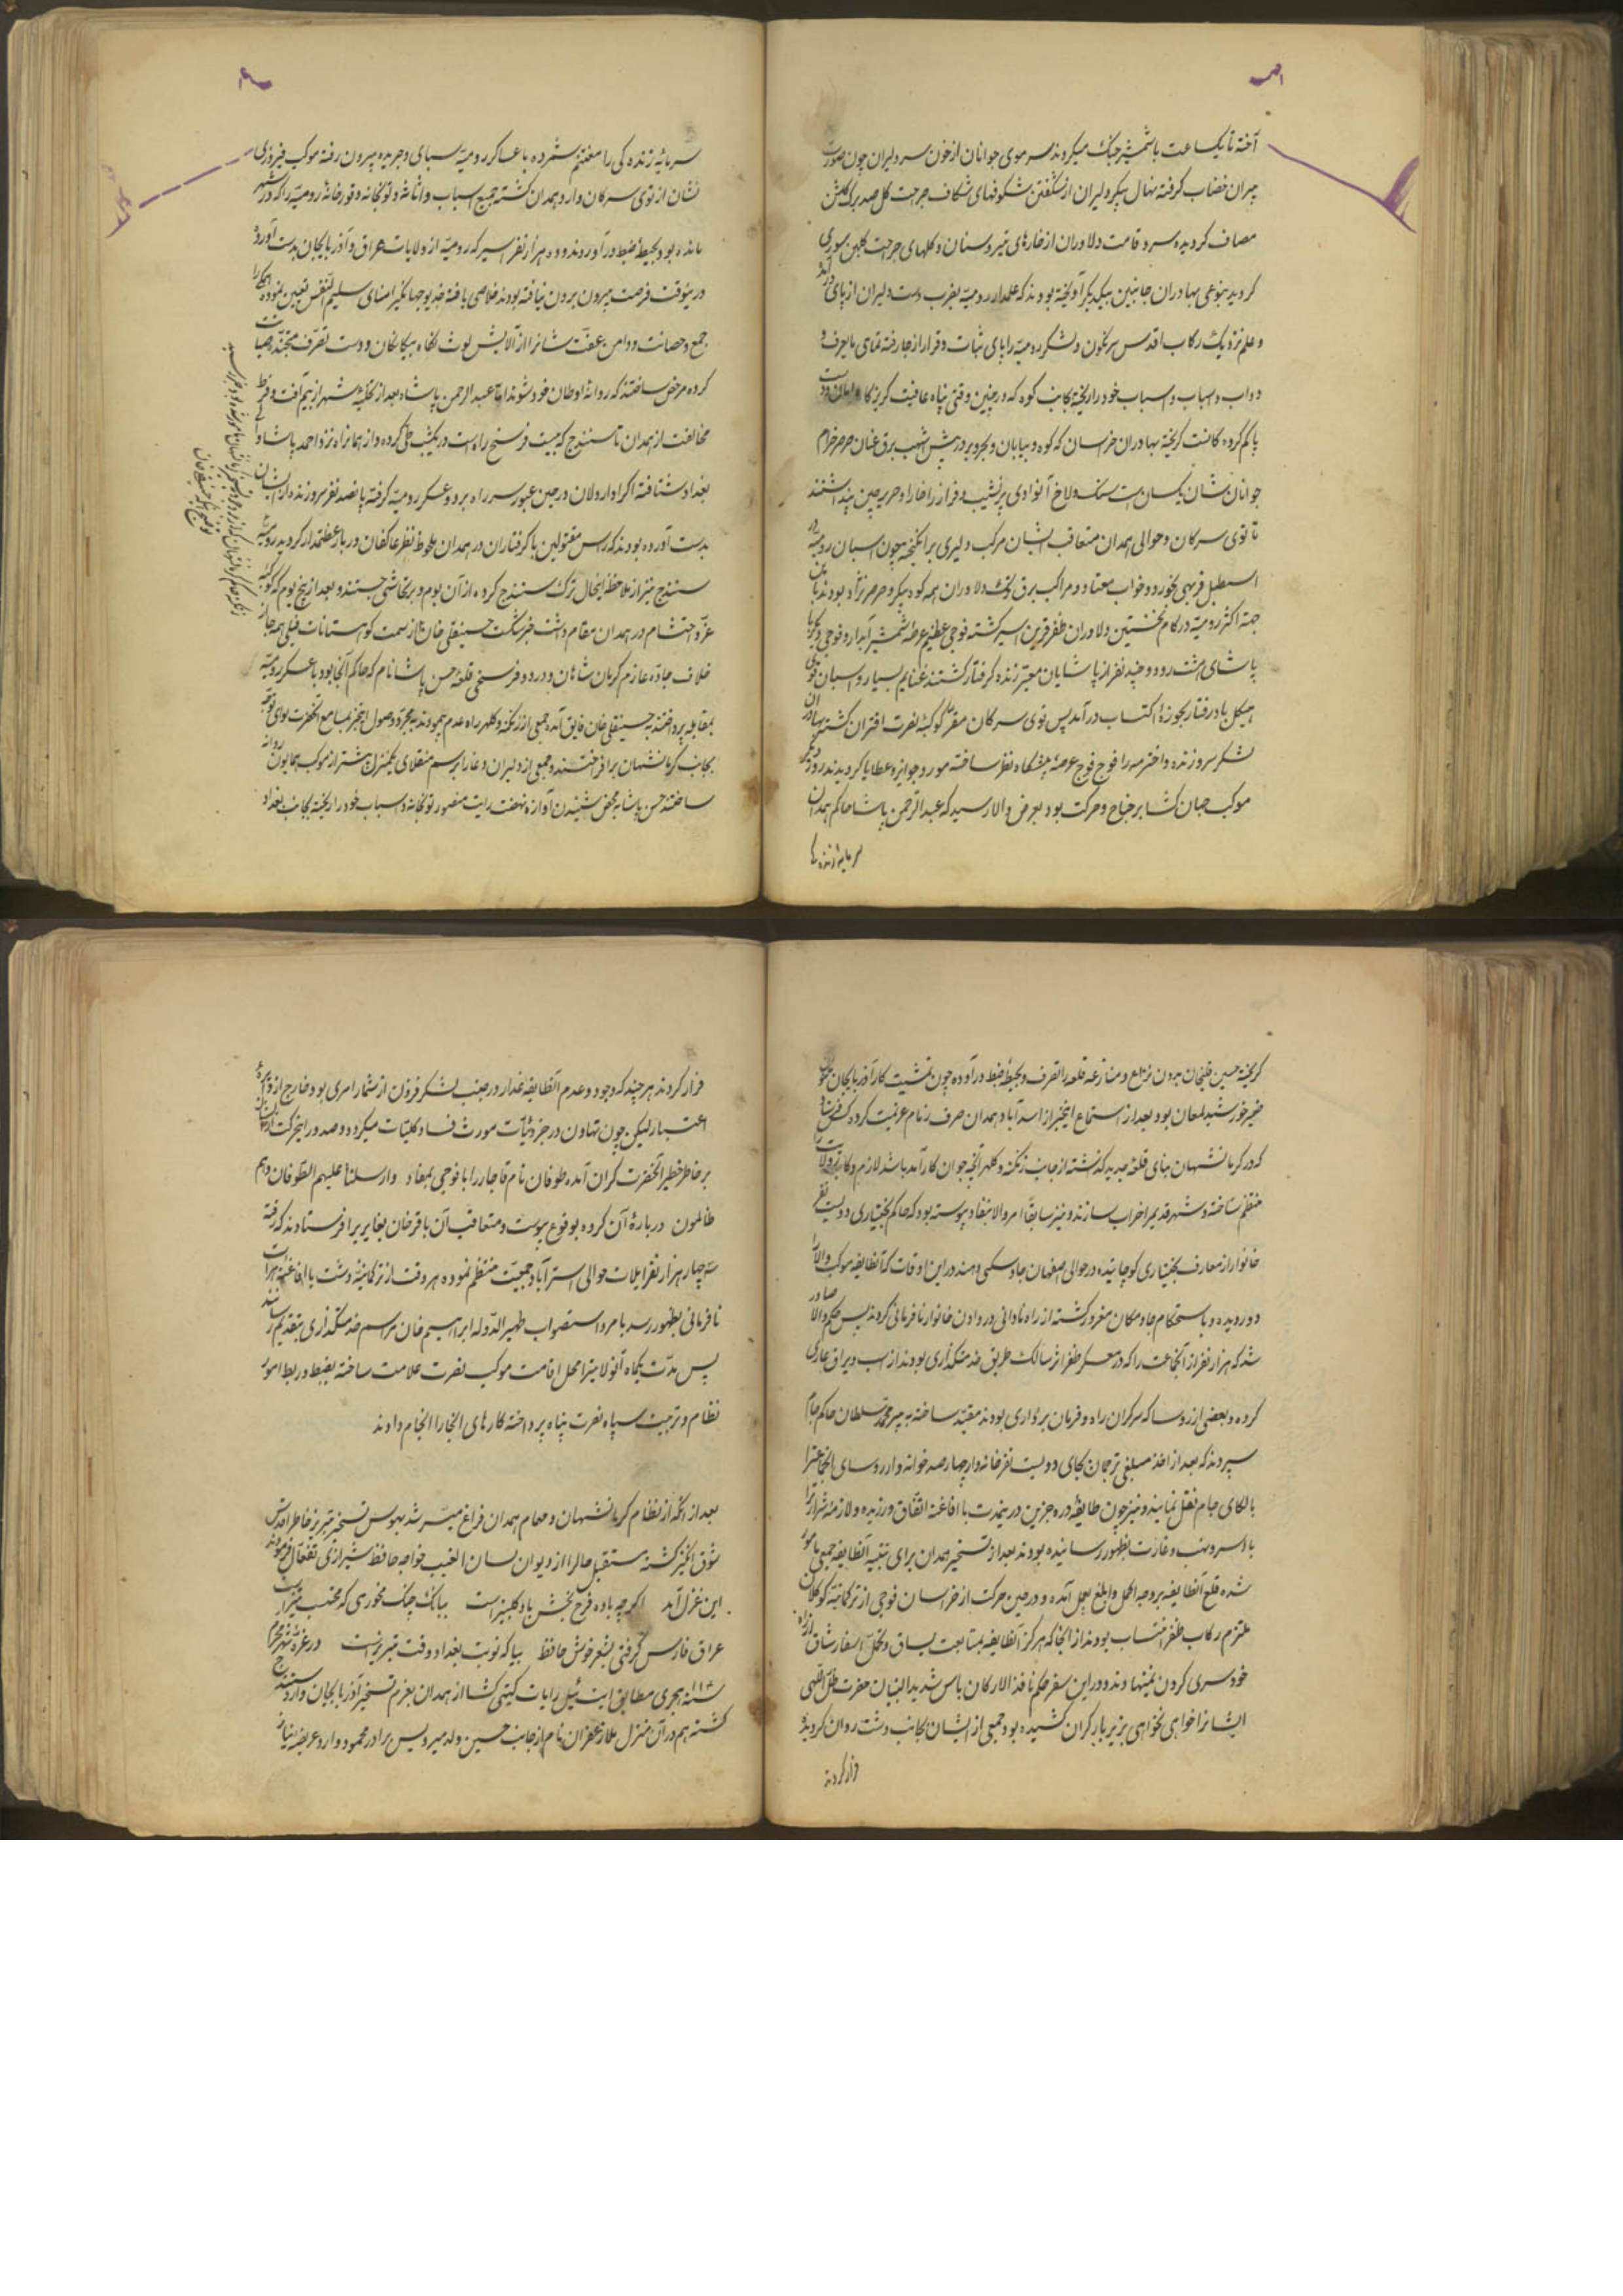 آخته تا یکساعت با شمشیر جنک میکردند سر موی جوانان از خون سر دلیران چون صورت
پیران خضاب گرفته نهال پیکر دلیران از شکفتن شکوفهای شکاف جراحت کل صد برک کلشن
مصاف کردیده سرو قامت دلاوران از خارهای تیر و سنان و کلهای جراحت کلبن سوری
کردید بنوعی بهادران جانبین بیکدیکر آویخته بودند که علمدار رومیه بضرب دست دلیران از پای درآمد
و علم نزدیک رکاب اقدس سرنکون و لشکر رومیه را پای ثبات و قرار از جا رفته تمامی
دواب و اسباب خود را ریخته بجانب کوه که در چنین وقتی پناه عافیت کریز کاه
پا کم کرده کانست کریخته بهادران خراسان که کوه و بیابان و بحر و بر در پیش اشهب برق عنان صرصر خرام
جوانان شان یکسان است سنک ولاخ آنوادی پر نشیب و فراز را خارا و حریر چین پنداشتند
تا توی سرکان و حوالی همدان متعاقب ایشان مرکب دلیری برانکیخته چون اسبان رومیه در
اسطبل فربهی خورد و خواب معتاد و مراکب برق تک دلاوران همه کوه پیکر و صرصر نژاد بودند باین
جهته اکثر رومیه در کام نخستین دلاوران ظفر قرین اسیر کشته فوجی عظیم عرضه شمشیر آبدار و فوجی دیکر با
پاشای هشت رود و چند نفر از پاشایان معتبر زنده گرفتار کشتند غنایم بسیار و اسبان قوی
هیکل باد رفتار بحوزه اکتساب در آمد پس توی سرکان مقر کوکبه نصرت اقتران کشته بهادران
لشکر سر و زنده و اخترمه را فوج فوج عرصه پیشکاه نظر ساخته مورد جوایز و عطایا کردیدند روز دیکر
موکب جهان کشا بر جناح حرکت بود بعرض والا رسید که عبدالرحمن پاشا حاکم همدان
سرمایه زنده کی را
سرمایه زنده کی را مغتنم شمرده با عساکر رومیه سبای و جریده بیرون رفته موکب فیروزی
نشان از توی سرکان وارد همدان کشته جمیع اسباب و اثاثه و توپخانه و قورخانه رومیه را که در شهر
مانده بود بحیطه ضبط در آوردند و ده هزار نفر اسیر که رومیه از ولایات عراق و آذربایجان بدست آورده
در ینوقت فرصت بیرون بردن نیافته بودند خلاصی یافته خدیو جهانکیر امنای سلیم النفس تعیین نموده آنها را
جمع و حصانت و دامن عفت شانرا از آلایش لوث نکاه بیکانکان و دست تصرف
کرده مرخص ساختند که روانه اوطان خود شوند اما عبدالرحمن پاشا بعد از تخلیه شهر از بیم آفت و فرط
مخافت از همدان تا سنندج که بیست فرسنخ راه است در یکشب طی کرده و از همانراه نزد احمد پاشا والی
بغداد شتافته اکراد اردلان در حین عبور سر راه بر دو عسکر رومیه کرفته پانصد نفر سر و زنده از ایشان
بدست آورده بودند که راس مقتولین با کرفتاران در همدان ملحوظ نظر عاکفان دربار عظمتمدار کردید رومیه
سنندج نیز از ملاحظه اینحال ترک سنندج کرده از آن بوم و بر تحاشی جستند و بعد از پنج یوم که کوکبه
عز و احتشام در همدان مقام داشت خبر شکست حسینقلی خان از سمت کوهستانات فیلی همه جا از
خلاف جاده عازم کرمان شاهان و در دو فرسخی قلعه حسن پاشا نام که حاکم آنجا بود با عسکر رومیه
بمقابله پرداختند حسینقلی خان فایق آمد جمعی از زنکنه و کلهر راه عدم پیمودند بمجرد وصول اینخبر بمسامع آنحضرت لوای توجه
بجانب کرمانشهان برافراختند و جمعی از دلیران و غازیان برسم منقلای یکمنزل پیشتر از موکب همایون روانه
ساختند حسن پاشا بمحض شنیدن آوازه نهضت رایت منصور توپخانه و اسباب خود را ریخته بجانب بغداد
کریخته حسین قلیخان بدون نزاع و منازعه قلعه را تصرف و بحیطه ضبط در آورده چون تمشیت کار آذربایجان مکنون
ضمیر خورشید لمعان بود بعد از استماع اینخبر از اسد آباد همدان صرف زمام عزیمت کردو کس فرستاد
که در کرمانشهان بنای قلعه جدید کذاشته از جانب زنکنه و کلهر آنچه جوان کارآمد باشد ملازم و کار ولایت را
منتظم ساخته و شهر قدیم را خراب سازند و نیز سابقا امر والا بنفاذ پیوسته بود که حاکم بختیاری دویست نفر
خانوار از معارف بختیاری کوچانیده در حوالی اصفهان جا و سکنی دهند در این اوقات که آنطایفه موکب والا را
دور دیده و باستحکام جا و مکان مغرور کشته از راه نادانی در دادن خانوار نافرمانی کردند پس حکم والا صادر
شد که هزار نفر از آنجماعت را که در معسکر ظفر اثر سالک طریق خدمتکذاری بودند از اسب و یراق عاری
کرده و بعضی از روسا که سرکران راه و فرمان برداری بودند مقید ساخته به پیر محمد سلطان حاکم جام
سپردند که بعد از اخذ مبلغی ترجمان بجای دویست نفر خانه وار چهار صد خوانه وار روسای آنجماعترا
بالکای جام نقل نمایند و نیز چون طایفه دره جزین در ینمدت با افاغنه اتفاق ورزیده و لازمه شرارترا
با اسر و نهب و غارت بظهور رسانیده بودند بعد از تسخیر همدان برای تنبیه آنطایفه جمعی مامور
شده قلع آنطایفه بر وجه اکمل و ابلغ بعمل آمده و در حین حرکت از خراسان فوجی از ترکمانیه کوکلان
ملتزم رکاب ظفر انتساب بودند از آنجا که هرکز آنطایفه بمتابعت یساق و تحمل اسفار شاق
خود سری کردن نمینهادند و در این سفر حکم نافذ الارکان باس شدید البنیان حضرت ظل اللهی
ایشانرا خواهی نخواهی بزیر بار کران کشیده بود جمعی از ایشان بجانب دشت روان کردیده
فرار کردند
فرار کردند هر چند که وجود و عدم آنطایفه غدار در جنب لشکر فزون از شمار امری بود خارج از دایره
اعتبار لیکن چون تهاون در جزئیات مورث فساد کلیات میکردد و صدور اینحرکت از ایشان
بر خاطر خطیر آنحضرت کران آمده طوفان نام قاجار را با فوجی بمفاد و ارسلنا علیهم الطوفان وهم
ظالمون درباره آن کروه بوقوع پیوست و متعاقب آن باقر خان بغایری را فرستادند که رفته
سه چهار هزار نفر ایلات حوالی استرآباد جمعیت منتظم نموده هر وقت از ترکمانیه دشت یا افاغنه هرات
نافرمانی بظهور رسد بامر و استصواب ظهیر الدوله ابراهیم خان مراسم خدمتکذاری بتقدیم رسانند
پس مدت یکماه آنولا میترا محل اقامت موکب نصرت علامت ساخته بضبط و ربط امور
نظام و تربیت سپاه نصرت پناه پرداخته کارهای آنجا را انجام دادند
بعد از آنکه از نظام کرمانشهان و مهام همدان فراغ میسر شد بهوس تسخیر تبریز خاطر اقدس
شوق انکیز کشته مستقبل حالرا از دیوان لسان الغیب خواجه حافظ شیرازی تفعال فرمودند
این غزل آمد اکرچه باده فرح بخش باد کلبیز است ببانک چنک مخور می که محتسب تیز است
عراق فارس کرفتی بشعر خوش حافظ بیا که نوبت بغداد و وقت تبریزست در غره شهر محرم
سنه ۱۱۴ هجری مطابق ایت ئیل رایات کیتی کشا از همدان بعزم تسخیر آذربایجان وارد سنندج
کشته هم در آن منزل ملا زعفران نام از جانب حسین ولد میرویس برادر محمود وارد عریضه نیاز